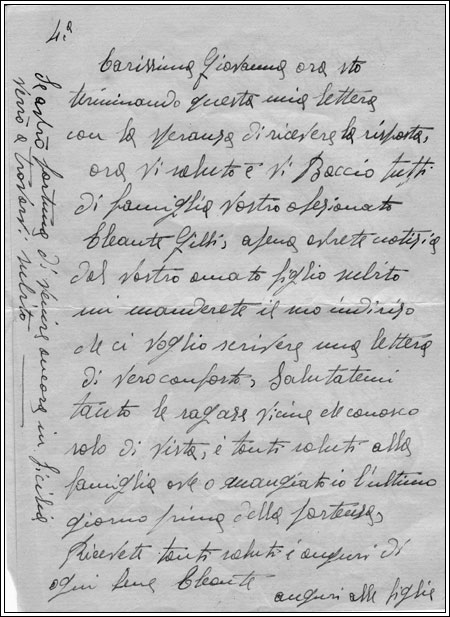 4.a
Carissima Giovanna ora sto
terminando questa mia lettera
con la speranza di ricevere la risposta,
ora vi saluto e vi Baccio tutti
di famiglia vostro afesionato
Cleante Gilli, apena avrete notizia
dal vostro amato figlio subito
mi manderete il suo indiriso
che ci voglio scrivere una lettera
di vero conforto, Salutatemi
tanto le ragase vicine che conosco
solo di vista, e tanti saluti alla
famiglia ove o mangiato io l'ultimo
giorno prima della partensa,
Ricevete tanti saluti e auguri di
ogni bene Cleante
auguri alle figlie
Se avrò fortuna di venire ancora in Sicilia
verrò a trovarvi subito